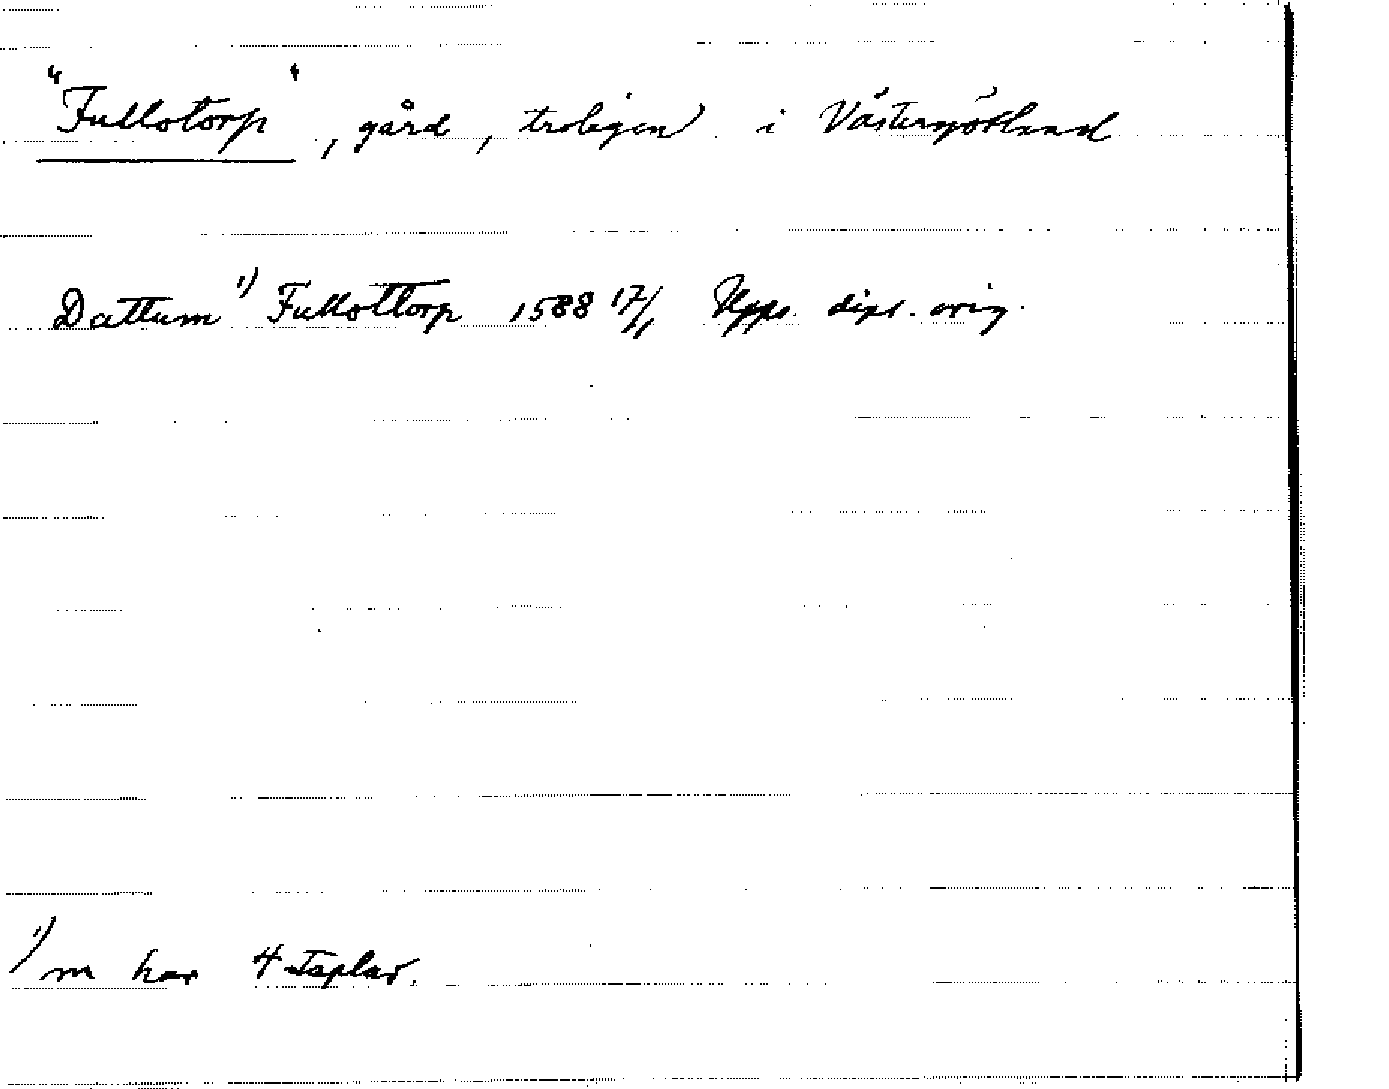 "Fullotorp", gård, troligen i Västergötland
Dattum 1) Fullottorp 1588 17/1 Upps. dipl. orig.
1) m har 4 staplar.